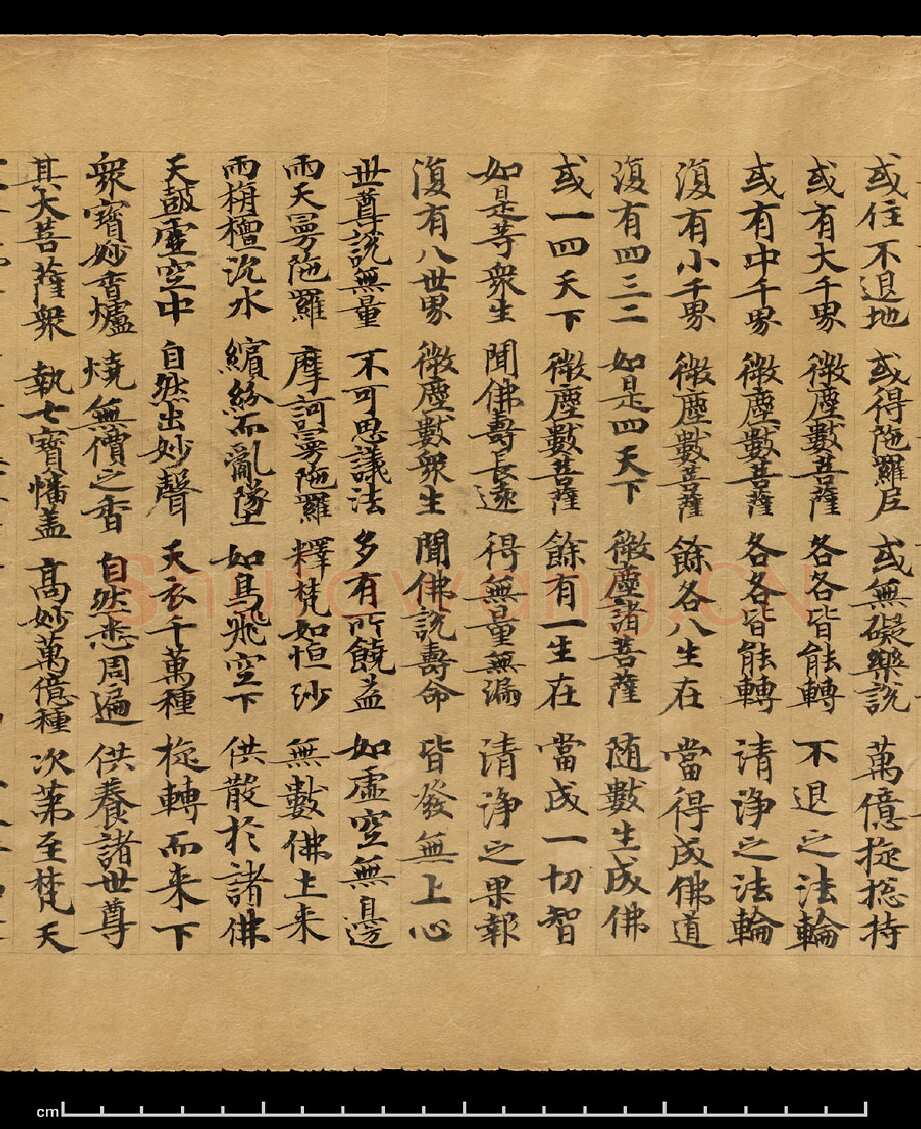 或住不退地 或得陁羅尼 或無礙樂說 萬億旋捴持
或有大千界 微塵數菩薩 各各皆能轉 不退之法輪
或有中千界 微塵數菩薩 各各皆能轉 清淨之法輪
復有小千界 微塵數菩薩 餘各八生在 當得成佛道
復有四三二 如是四天下 微塵諸菩薩 随數生成佛
或一四天下 微塵數菩薩 餘有一生在 當成一切智
如是等衆生 聞佛壽長遠 得無量無漏 清淨之果報
復有八世界 微塵數衆生 聞佛說壽命 皆發無上心
世尊說無量 不可思議法 多有所饒益 如虛空無邊
雨天曼陁羅 摩訶曼陁羅 釋梵如恒沙 無數佛土来
雨栴檀沉水 繽紛而亂墜 如鳥飛空下 供散於諸佛
天鼓虛空中 自然出妙聲 天衣千萬種 旋轉而来下
衆寶妙香爐 燒無價之香 自然悉周遍 供養諸世尊
其大菩薩衆 執七寶幡盖 高妙萬億種 次第至梵天
Shufawang.CN
cm